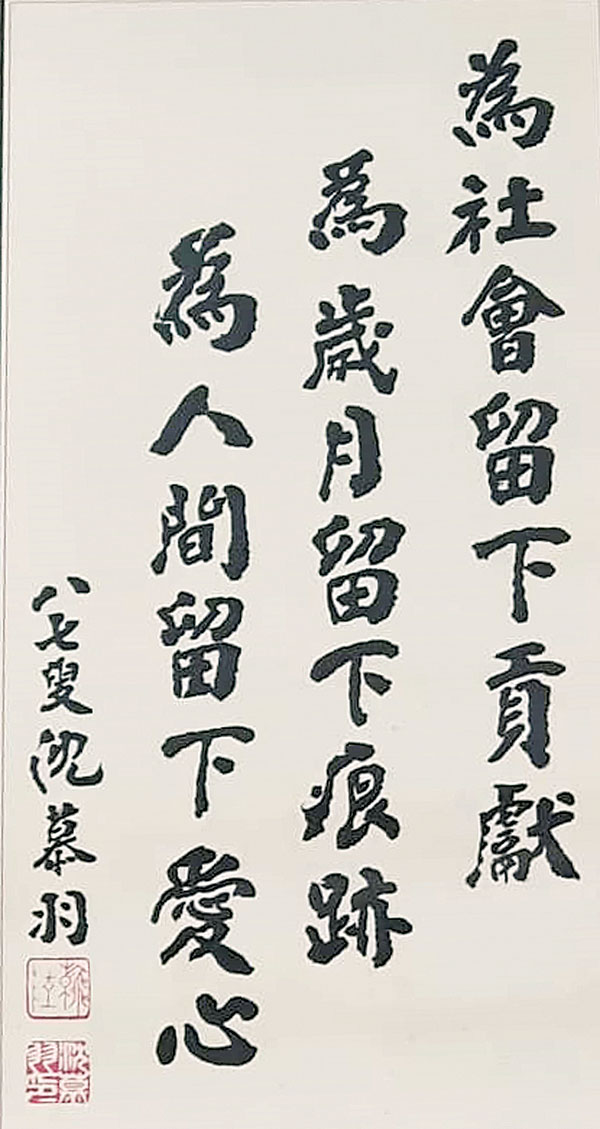 為社會留下貢獻
為歲月留下痕跡
為人間留下愛心
八七叟沈慕羽